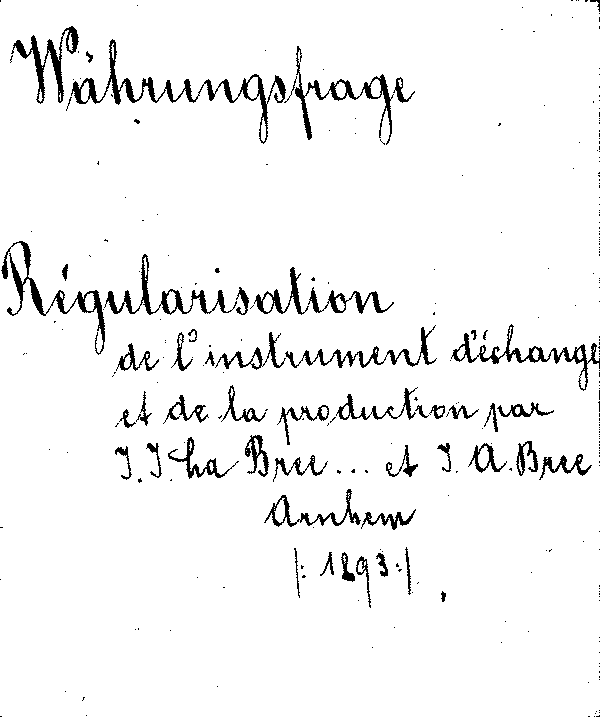 Währungsfrage
Régularisation
de l'instrument d'échange
et de la production par
J. J. La Bree ... et J. A. Bree
Arnhem
/: 1893 :/